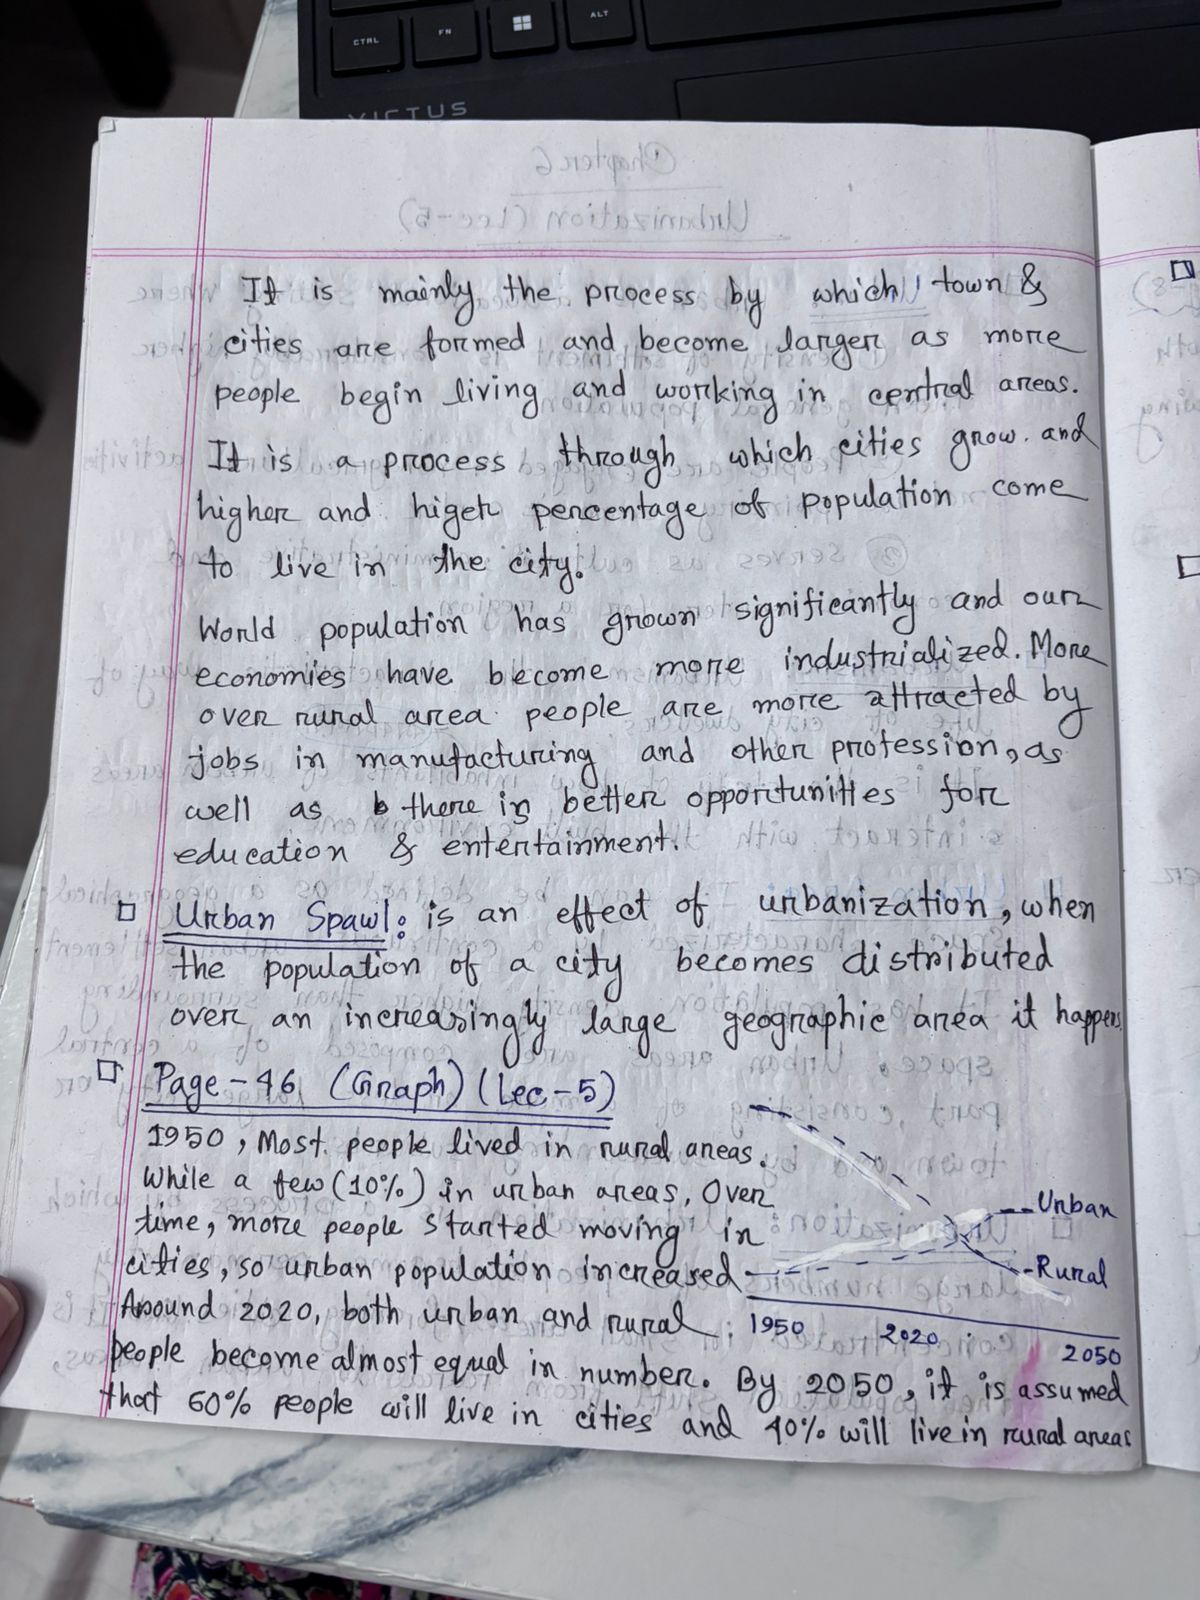 CTRL
FN
ALT
VICTUS
Chapter 6
Urbanization (Lec-5)
It is mainly the process by which town &
cities are formed and become larger as more
people begin living and working in central areas.
It is a process through which cities grow. and
higher and higeh percentage of population come
to live in the city.
World population has grown significantly and our
economies have become more industrialized. More
over rural area people are more attracted by
jobs in manufacturing and other profession, as
well as b there is better opportunities for
education & entertainment.
Urban Spawl: is an effect of urbanization, when
the population of a city becomes distributed
over an increasingly large geographic area it happens.
Page-46 (Graph) (Lec-5)
1950, Most people lived in rural areas.
While a few (10%) in urban areas, Over
time, more people started moving in
cities, so urban population increased
Around 2020, both urban and rural
people become almost equal in number. By 2050, it is assumed
that 60% people will live in cities and 40% will live in rural areas
Urban
Rural
1950 2020 2050